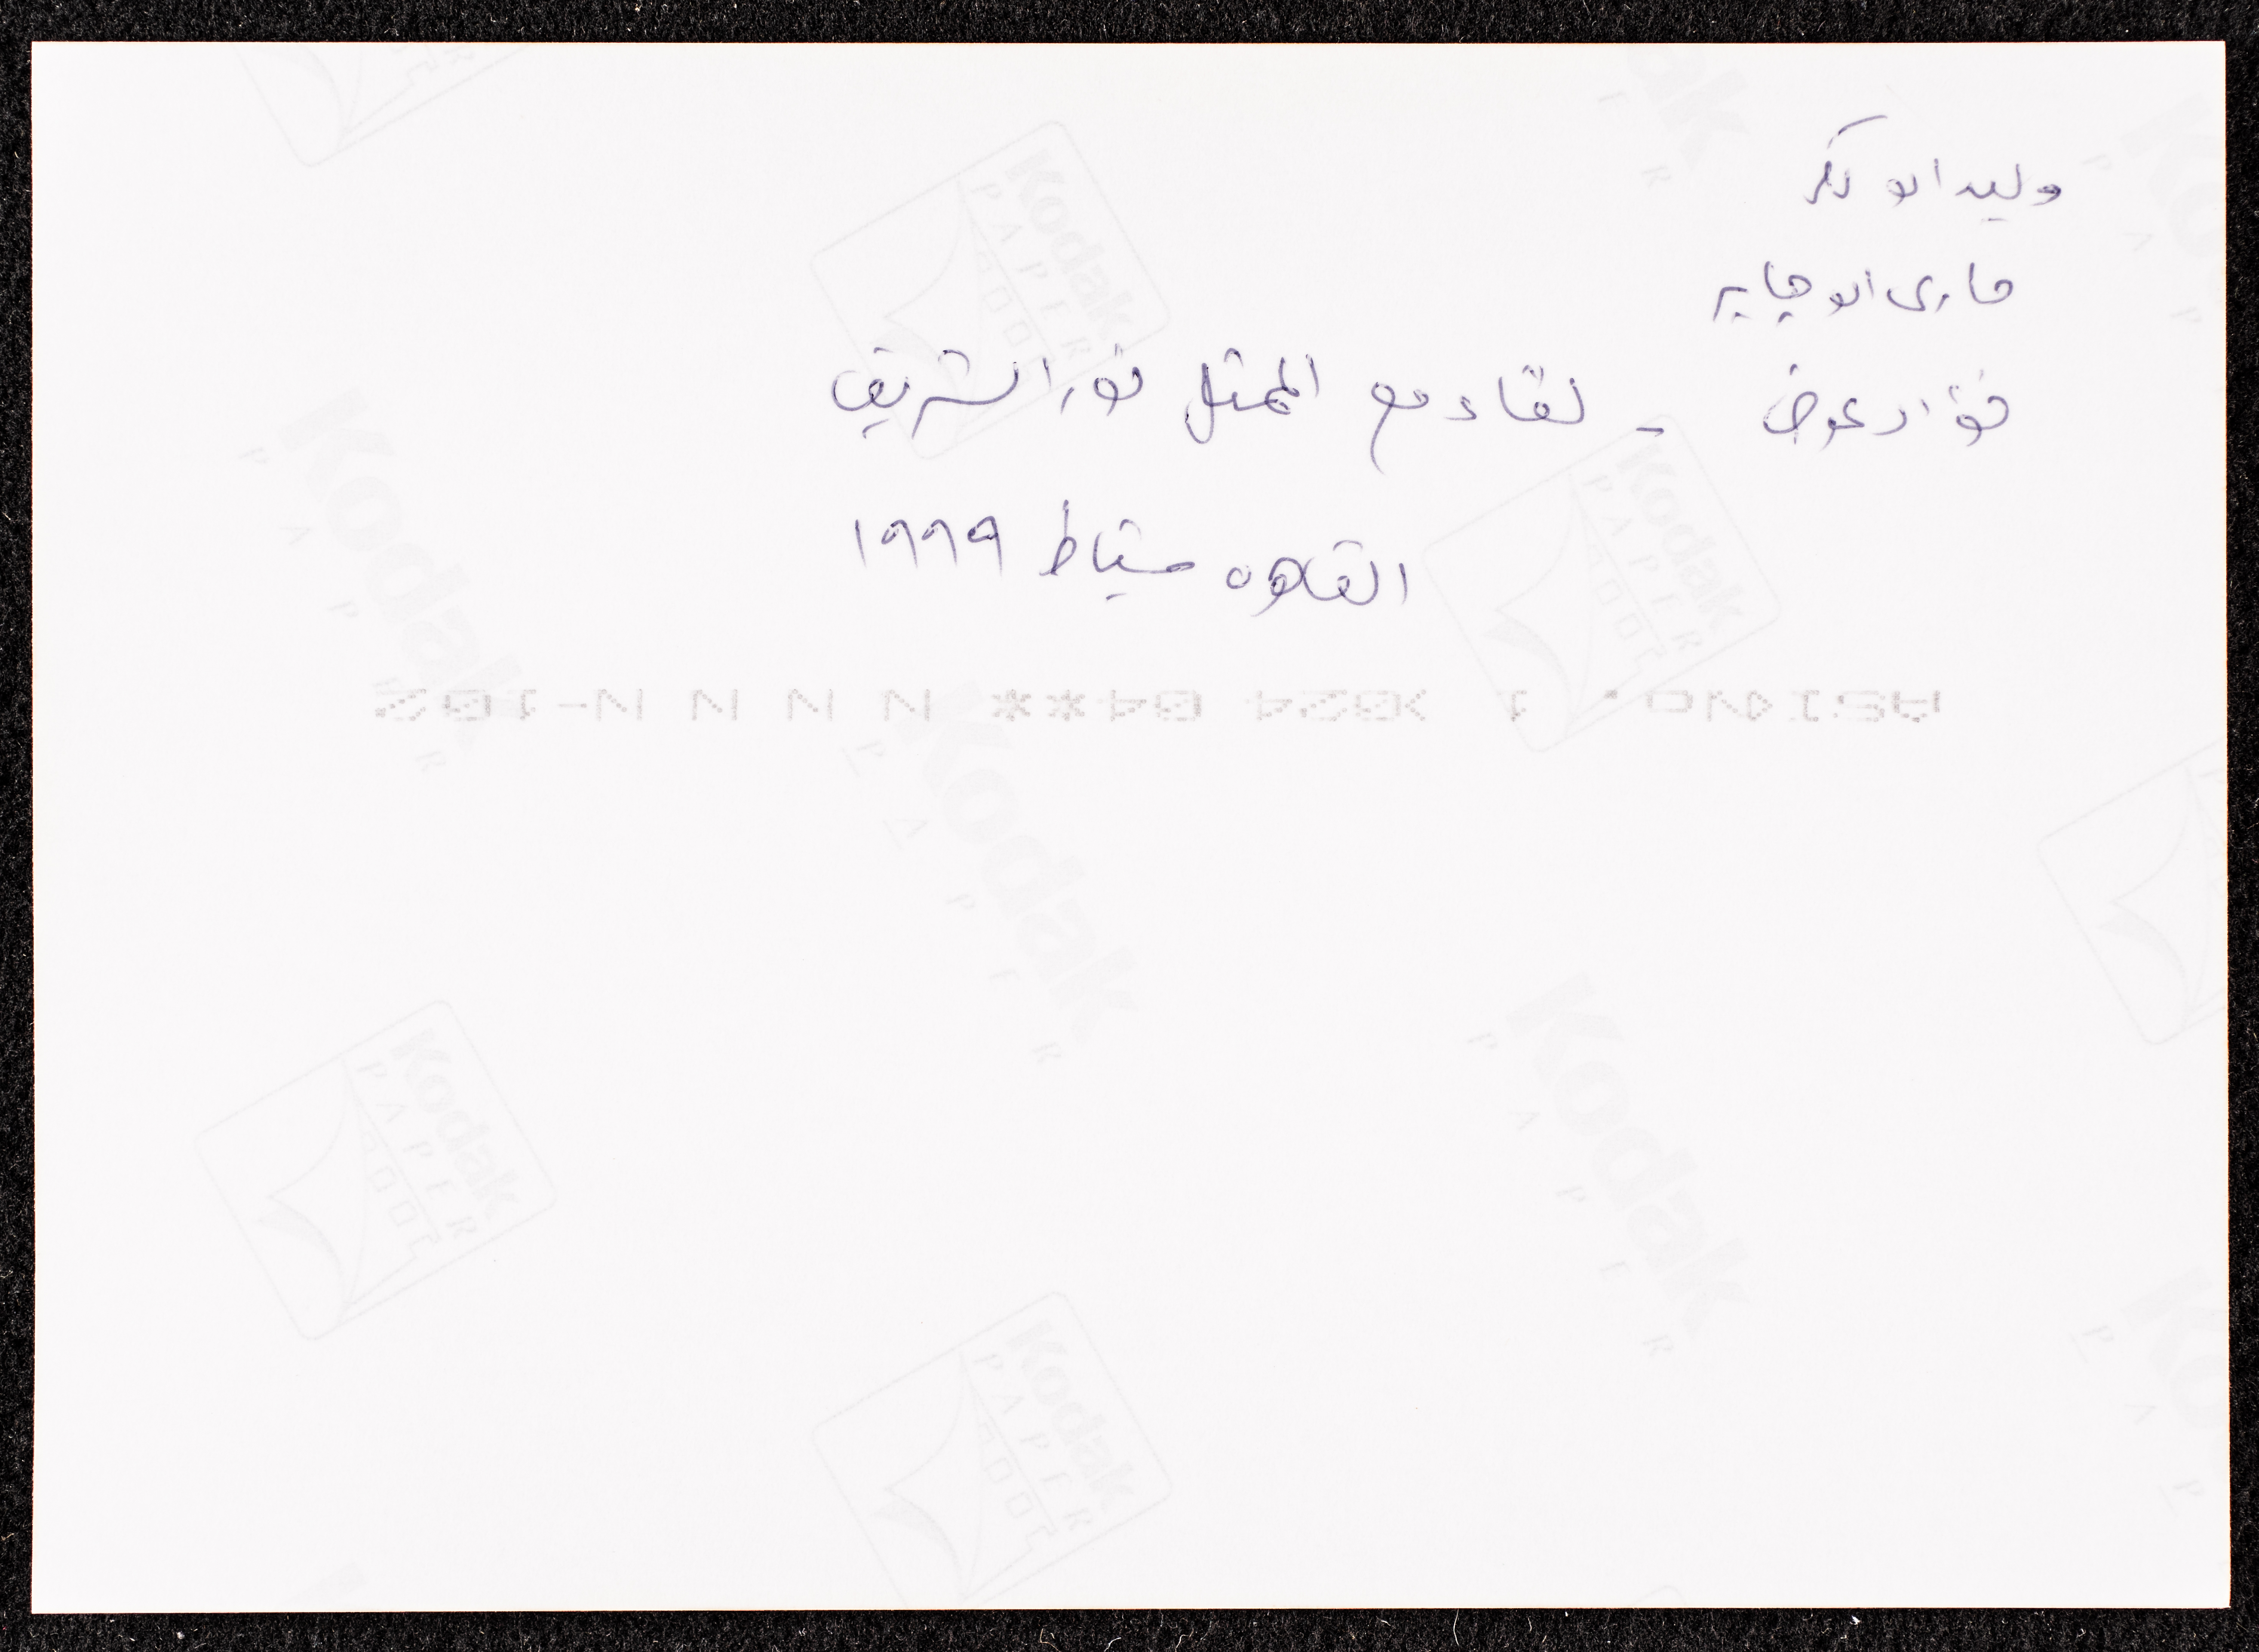 وليد ابو بكر
مارى ابو جابر
فؤاد عوض - لقاء مع الممثل نور الشريف
القاهره شباط ١٩٩٩
Kodak
PAPER